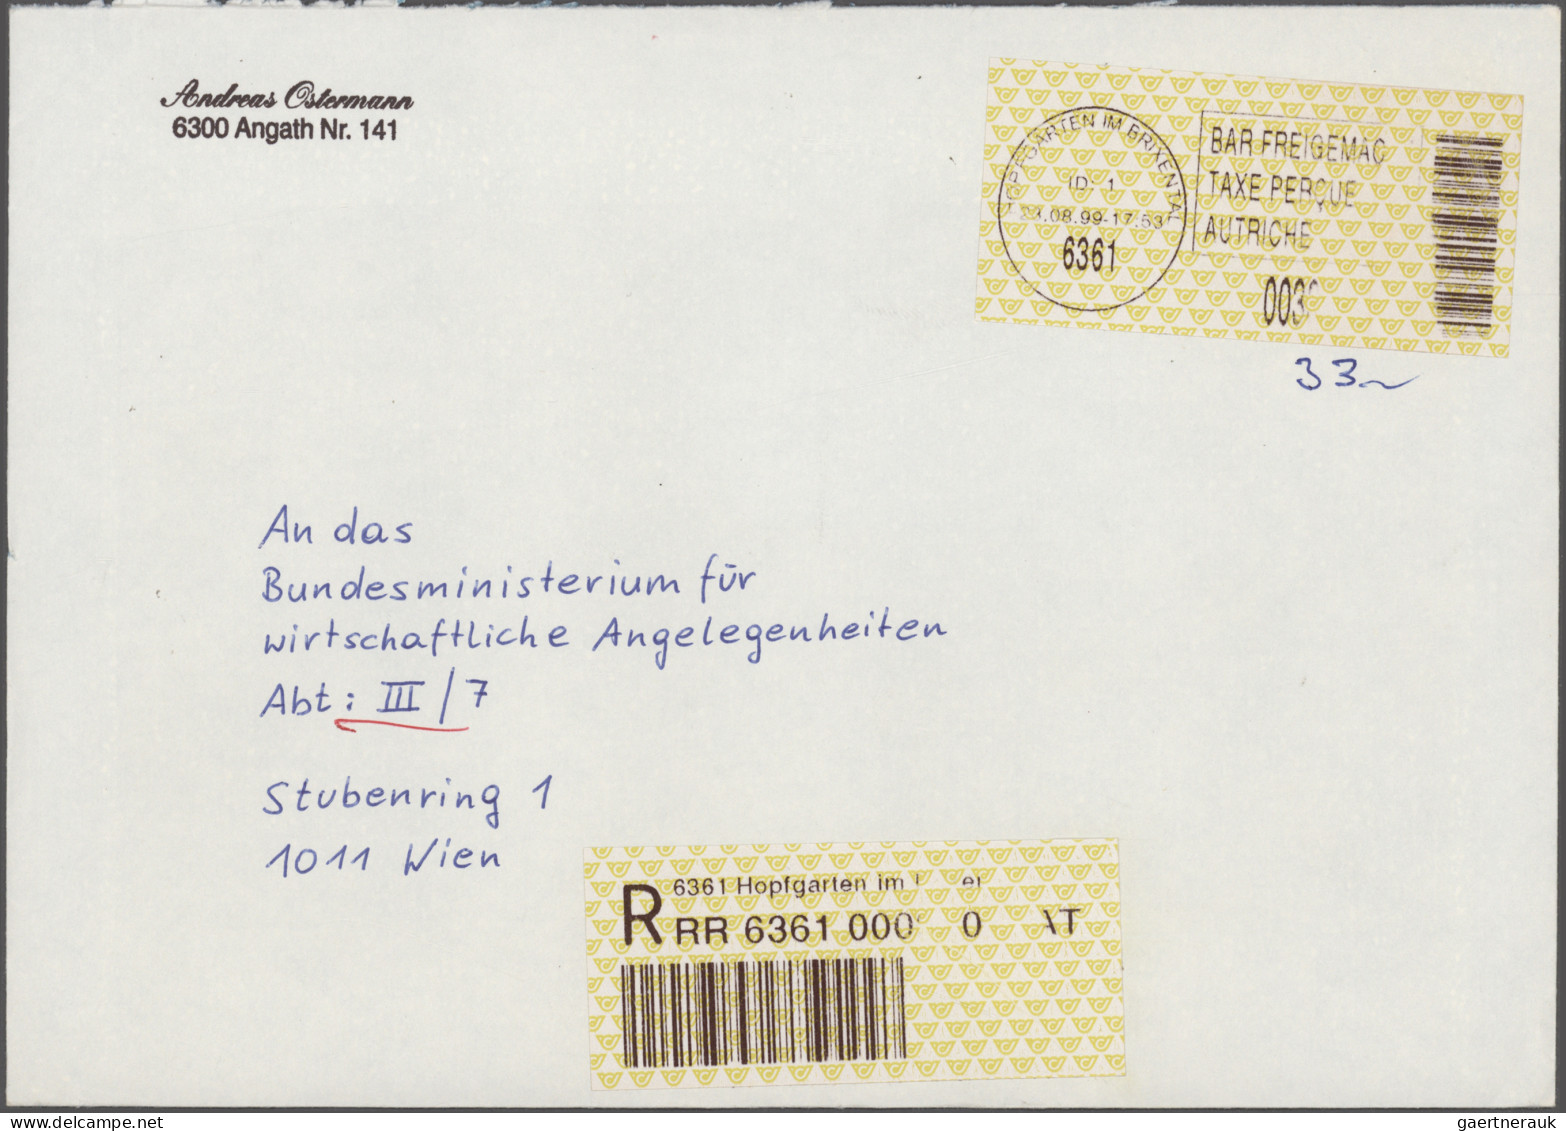 Andreas Ostermann
6300 Angath Nr. 141
HOPFGARTEN IM BRIXENTAL
ID- 1
.08.99-17.53
6361
BAR FREIGEMAC
TAXE PERÇUE
AUTRICHE
003
33
An das
Bundesministerium für
wirtschaftliche Angelegenheiten
Abt: III/7
Stubenring 1
1011 Wien
6361 Hopfgarten im
R RR 6361 000 0 AT
gaertnerauk